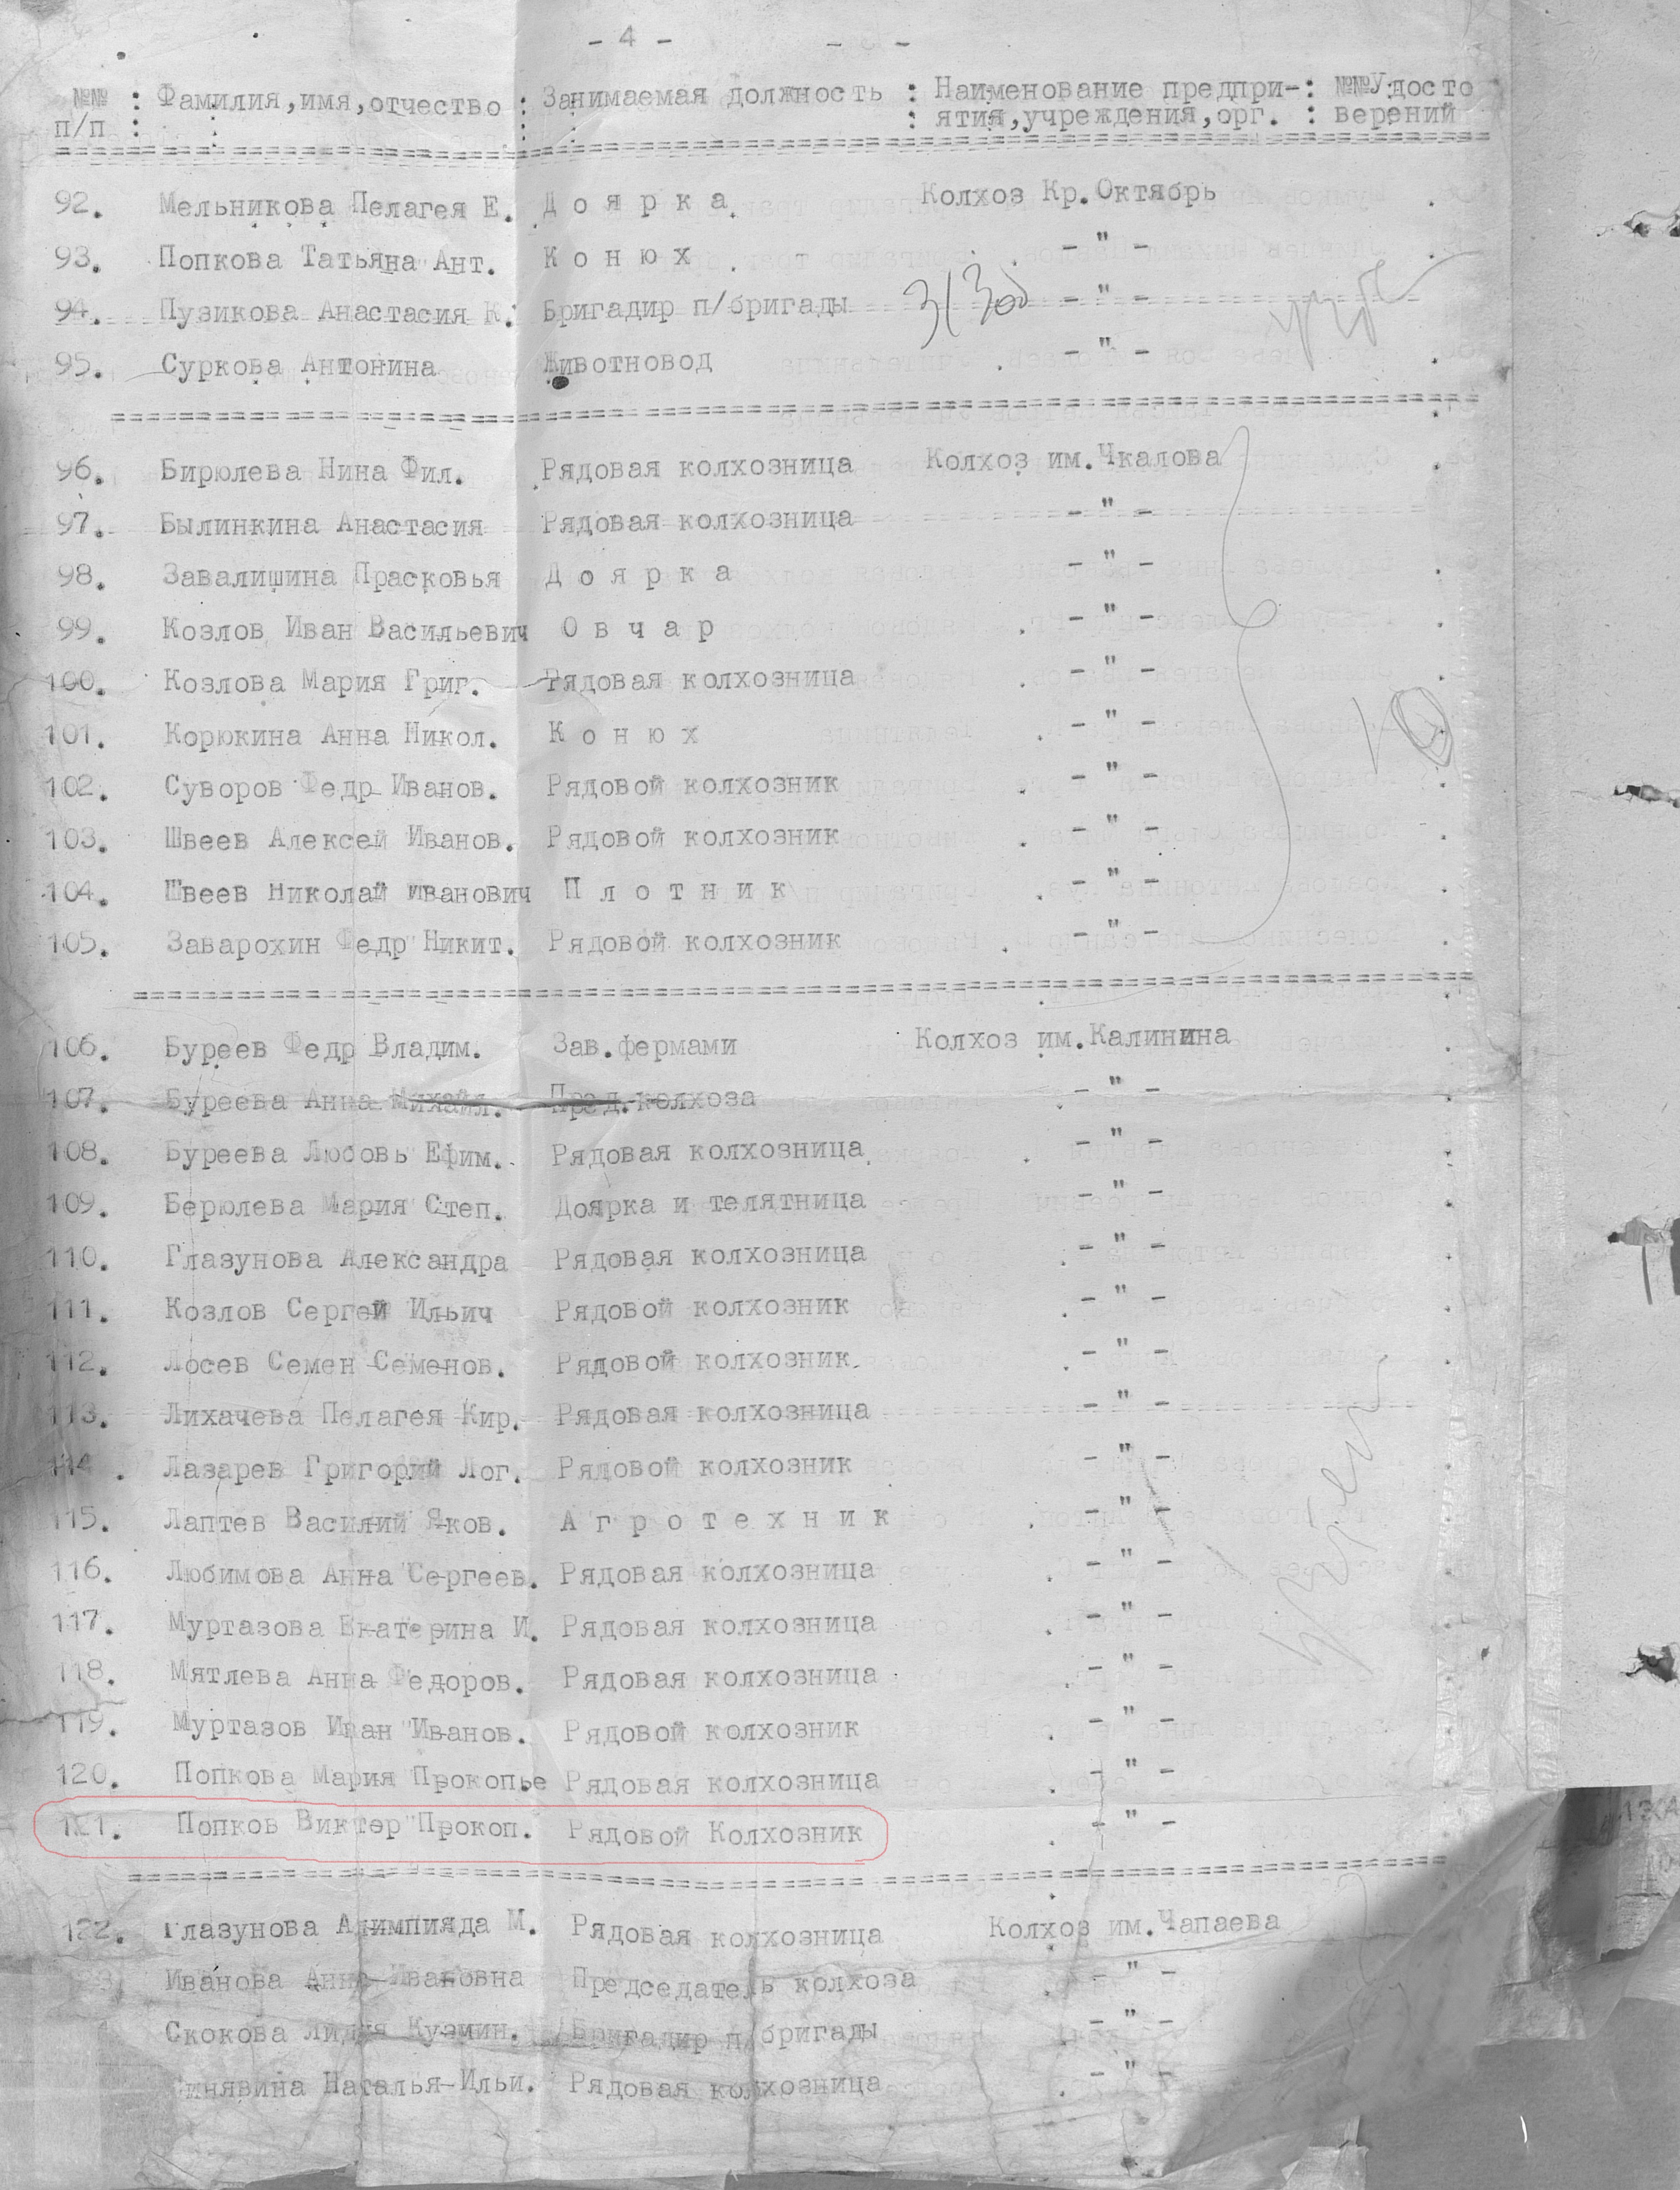 - 4 -
№№ : Фамилия,имя,отчество : Занимаемая должность : Наименование предпри- : №№Удосто
п/п : : : : ятия,учреждения,орг. : верений
92. Мельникова Пелагея Е. Доярка Колхоз Кр.Октябрь
93. Попкова Татьяна Ант. Конюх - " -
94. Пузикова Анастасия К. Бригадир п/бригады - " -
95. Суркова Антонина Животновод - " -
96. Бирюлева Нина Фил. Рядовая колхозница Колхоз им.Чкалова
97. Былинкина Анастасия Рядовая колхозница - " -
98. Завалишина Прасковья Доярка - " -
99. Козлов Иван Васильевич Овчар - " -
100. Козлова Мария Григ. Рядовая колхозница - " -
101. Корюкина Анна Никол. Конюх - " -
102. Суворов Федр Иванов. Рядовой колхозник - " -
103. Швеев Алексей Иванов. Рядовой колхозник - " -
104. Швеев Николай Иванович Плотник - " -
105. Заварохин Федр Никит. Рядовой колхозник - " -
10
106. Буреев Федр Владим. Зав.фермами Колхоз им.Калинина
107. Буреева Анна Михайл. Пред.колхоза - " -
108. Буреева Любовь Ефим. Рядовая колхозница - " -
109. Берюлева Мария Степ. Доярка и телятница - " -
110. Глазунова Александра Рядовая колхозница - " -
111. Козлов Сергей Ильич Рядовой колхозник - " -
112. Лосев Семен Семенов. Рядовой колхозник - " -
113. Лихачева Пелагея Кир. Рядовая колхозница - " -
114. Лазарев Григорий Лог. Рядовой колхозник - " -
115. Лаптев Василий Яков. Агротехник - " -
116. Любимова Анна Сергеев. Рядовая колхозница - " -
117. Муртазова Екатерина И. Рядовая колхозница - " -
118. Мятлева Анна Федоров. Рядовая колхозница - " -
119. Муртазов Иван Иванов. Рядовой колхозник - " -
120. Попкова Мария Прокопье Рядовая колхозница - " -
121. Попков Виктор Прокоп. Рядовой Колхозник - " -
122. Глазунова Алимпияда М. Рядовая колхозница Колхоз им.Чапаева
Иванова Анна Ивановна Председатель колхоза - " -
Скокова Лидия Кузмин. Бригадир п/бригады - " -
инявина Наталья Ильи. Рядовая колхозница - " -